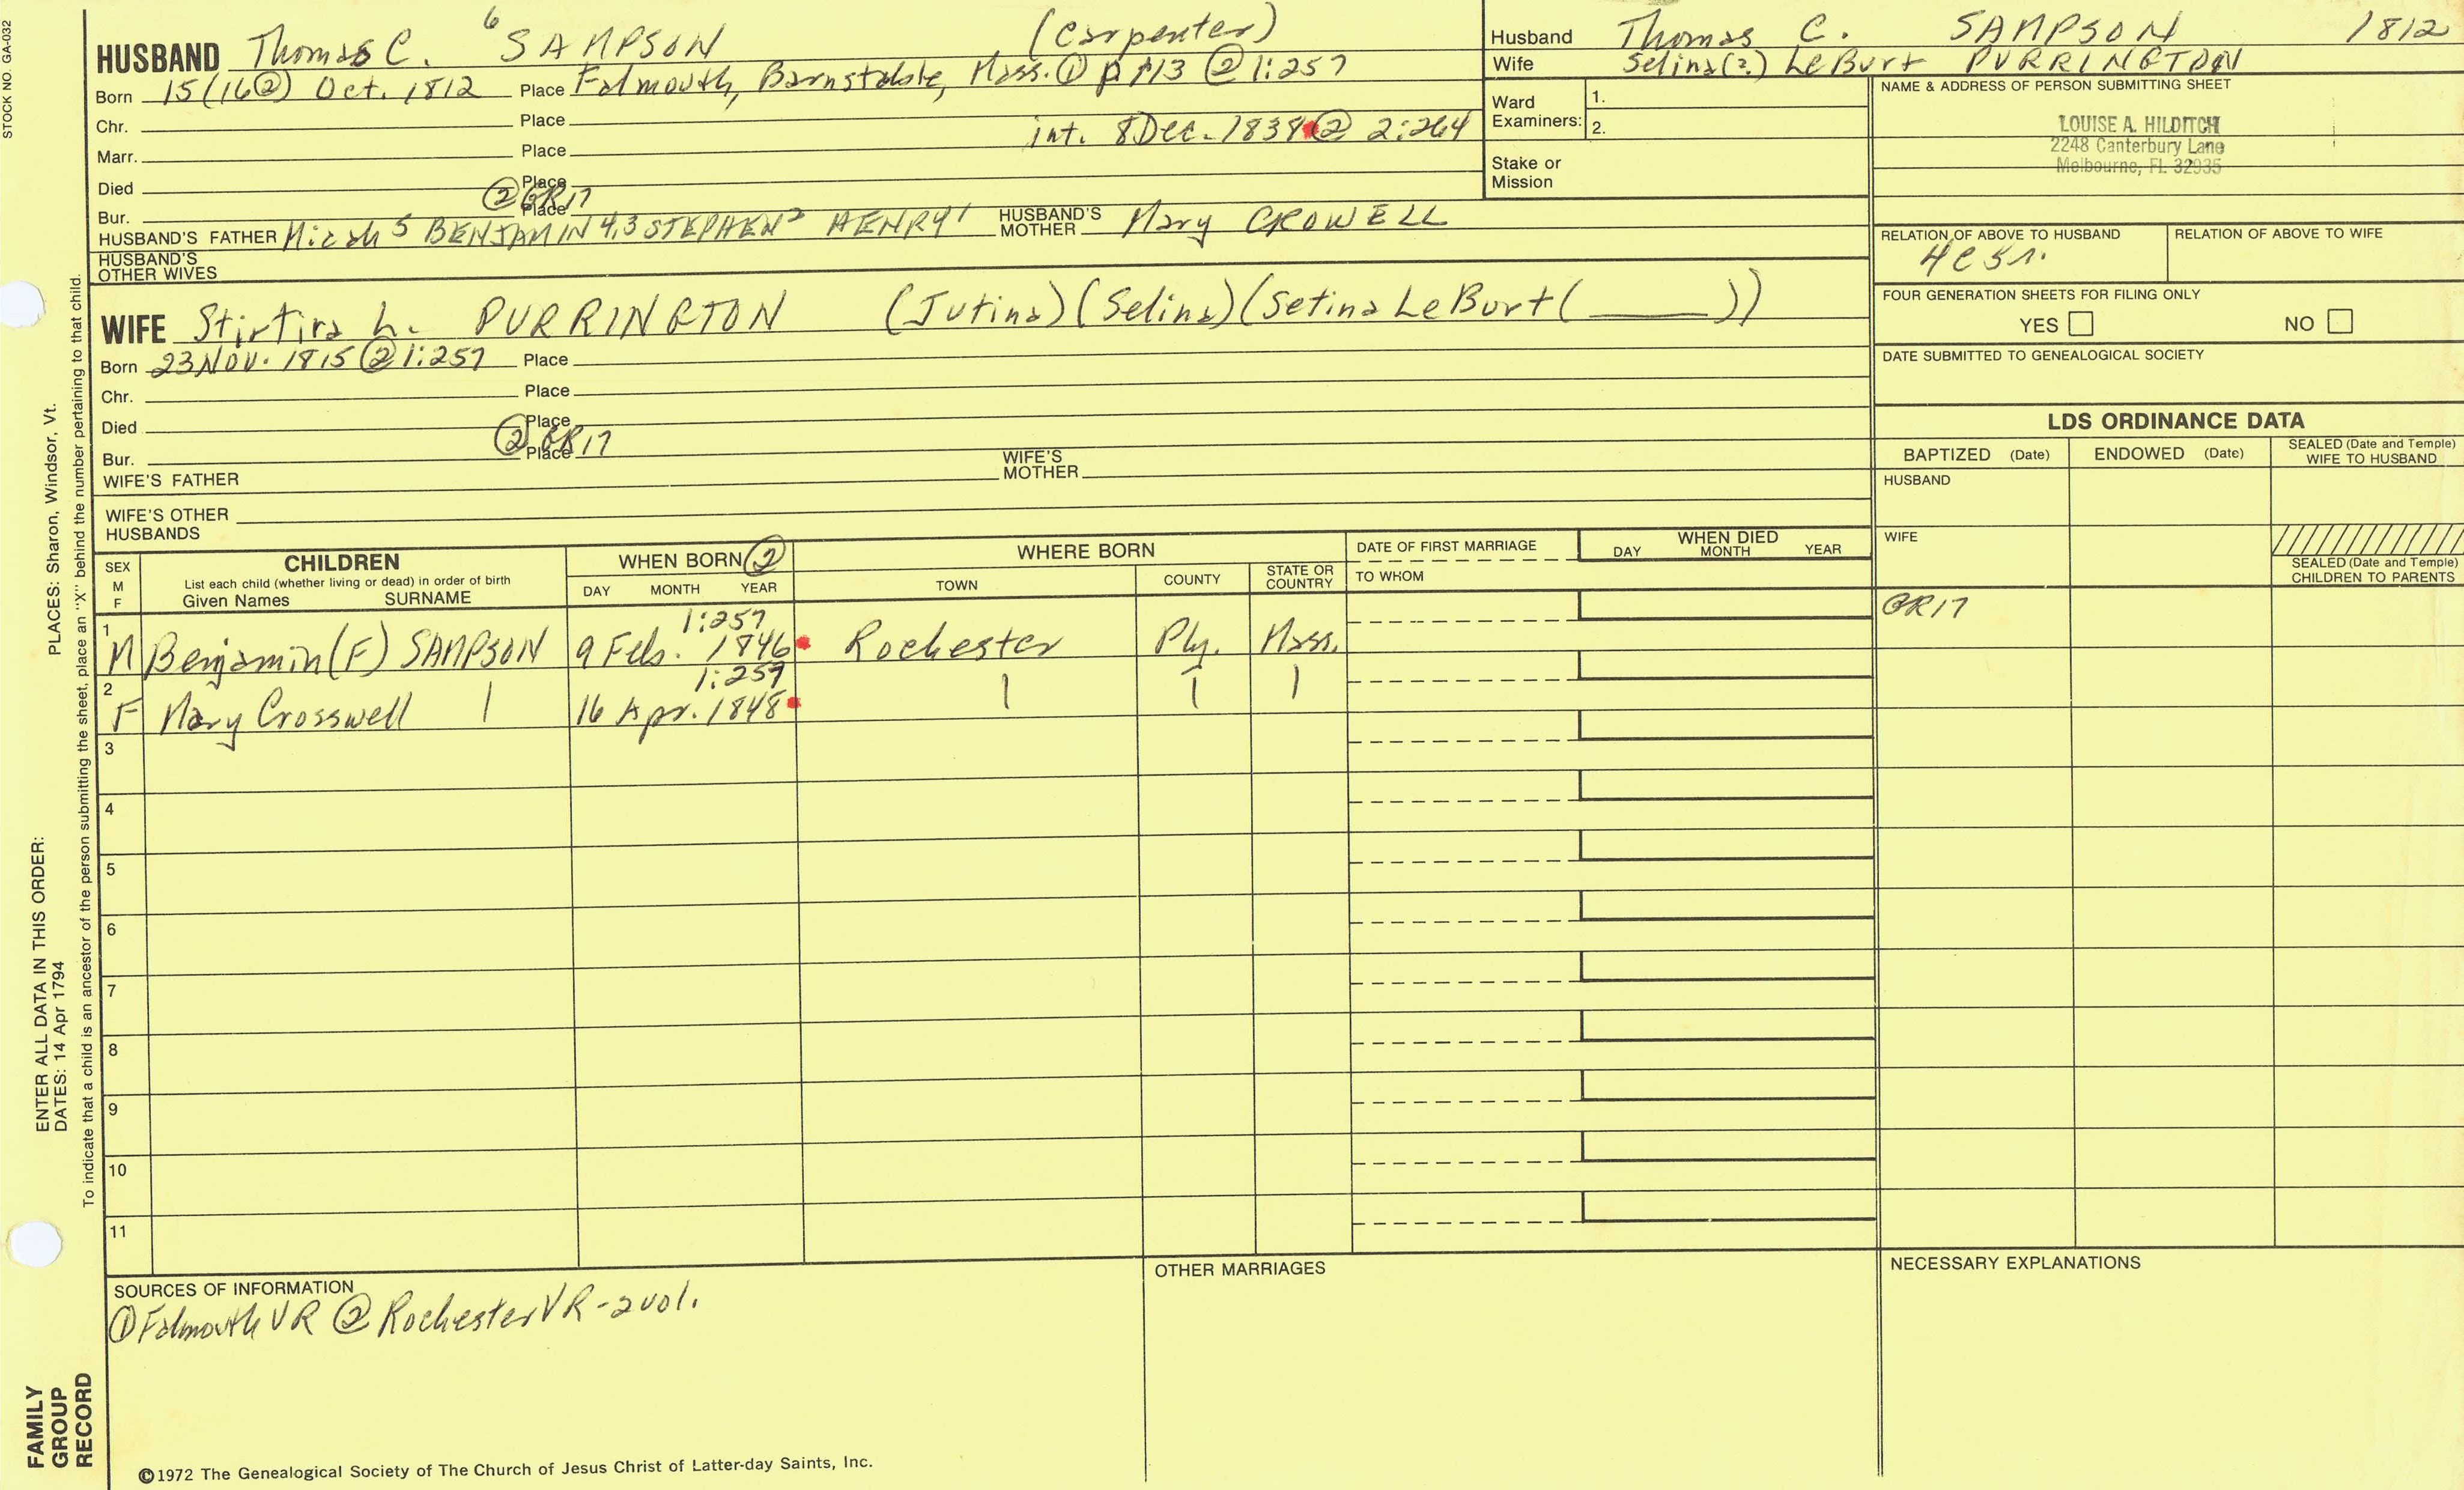 STOCK NO. GA-032
HUSBAND Thomas C. 6 SAMPSON (Carpenter)
Born 15(16②) Oct. 1812 Place Falmouth, Barnstable, Mass. ① p 113 ② 1:257
Chr. Place
int. 8 Dec. 1839 ② 2:264
Marr. Place
Died Place
② GR17
Bur. Place
HUSBAND'S FATHER Micah 5 BENJAMIN 4,3 STEPHEN 2 HENRY 1 HUSBAND'S MOTHER Mary CROWELL
HUSBAND'S OTHER WIVES
WIFE Stirtira L. PURRINGTON (Jutina) (Selina) (Setina LeBurt ( _____ ))
Born 23 NOV. 1815 ② 1:257 Place
Chr. Place
Died Place
② GR17
Bur. Place
WIFE'S FATHER WIFE'S MOTHER
WIFE'S OTHER HUSBANDS
Husband Thomas C. SAMPSON 1812
Wife Selina(?) LeBurt PURRINGTON
Ward Examiners: 1.
2.
Stake or Mission
NAME & ADDRESS OF PERSON SUBMITTING SHEET
LOUISE A. HILDITCH
2248 Canterbury Lane
Melbourne, Fl. 32935
RELATION OF ABOVE TO HUSBAND RELATION OF ABOVE TO WIFE
4C5r.
FOUR GENERATION SHEETS FOR FILING ONLY
YES NO
DATE SUBMITTED TO GENEALOGICAL SOCIETY
LDS ORDINANCE DATA
BAPTIZED (Date) ENDOWED (Date) SEALED (Date and Temple) WIFE TO HUSBAND
HUSBAND
WIFE
SEALED (Date and Temple) CHILDREN TO PARENTS
SEX M F
CHILDREN
List each child (whether living or dead) in order of birth
Given Names SURNAME
WHEN BORN ②
DAY MONTH YEAR
WHERE BORN
TOWN COUNTY STATE OR COUNTRY
DATE OF FIRST MARRIAGE
TO WHOM
WHEN DIED
DAY MONTH YEAR
1:257 GR17
1 M Benjamin (F) SAMPSON 9 Feb. 1846 Rochester Ply. Mass.
1:257
2 F Mary Crosswell | 16 Apr. 1848 | | |
3
4
5
6
7
8
9
10
11
SOURCES OF INFORMATION
① Falmouth VR ② Rochester VR - 2 vol.
OTHER MARRIAGES
NECESSARY EXPLANATIONS
©1972 The Genealogical Society of The Church of Jesus Christ of Latter-day Saints, Inc.
ENTER ALL DATA IN THIS ORDER:
PLACES: Sharon, Windsor, Vt.
DATES: 14 Apr 1794
To indicate that a child is an ancestor of the person submitting the sheet, place an "X" behind the number pertaining to that child.
FAMILY
GROUP
RECORD